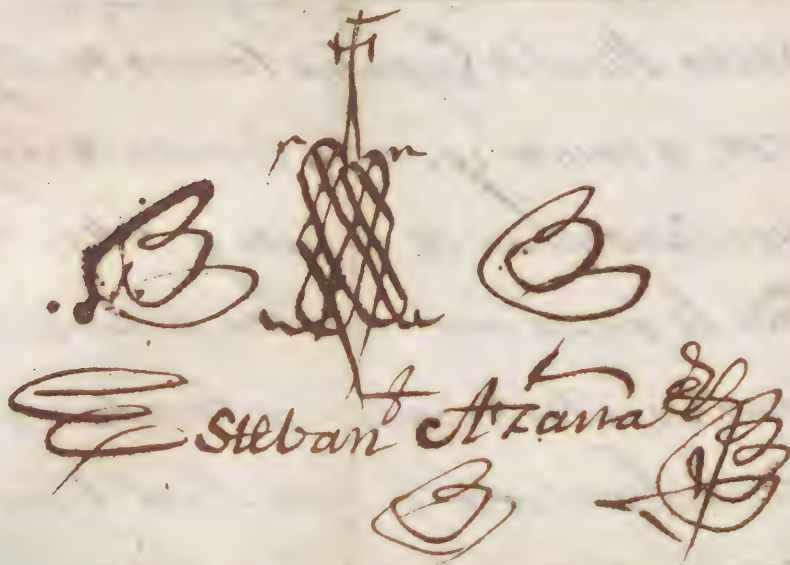 Esteban Azaña